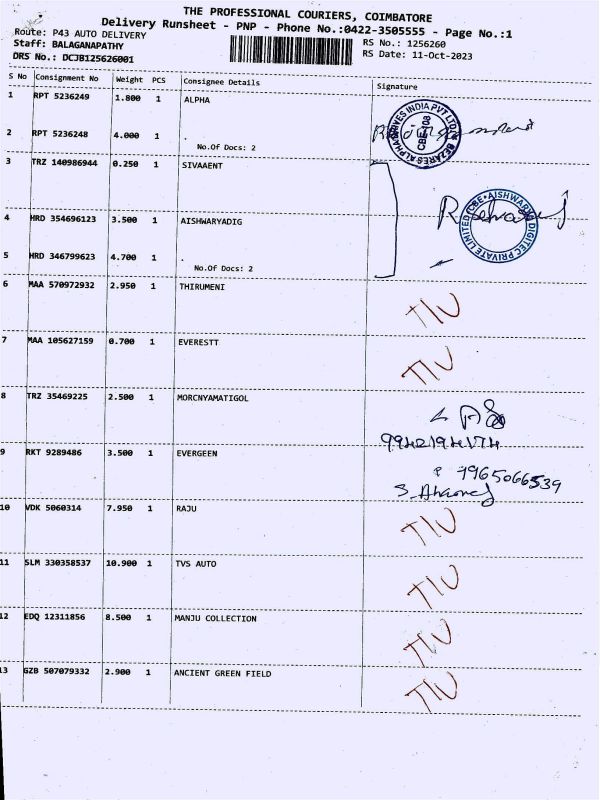 THE PROFESSIONAL COURIERS, COIMBATORE
Delivery Runsheet - PNP - Phone No.:0422-3505555 - Page No.:1
Route: P43 AUTO DELIVERY
Staff: BALAGANAPATHY
DRS No.: DCJB125626001
RS No.: 1256260
RS Date: 11-Oct-2023
S No Consignment No Weight PCS Consignee Details Signature
1 RPT 5236249 1.800 1 ALPHA
BEZARES ALPHADRIVES INDIA PVT LTD. CBE-108
2 RPT 5236248 4.000 1 .
No.Of Docs: 2
3 TRZ 140986944 0.250 1 SIVAAENT
4 HRD 354696123 3.500 1 AISHWARYADIG
AISHWARYA DIGITEC PRIVATE LIMITED CBE
5 HRD 346799623 4.700 1 .
No.Of Docs: 2
6 MAA 570972932 2.950 1 THIRUMENI
TIU
7 MAA 105627159 0.700 1 EVERESTT
TIU
8 TRZ 35469225 2.500 1 MORCNYAMATIGOL
9942194174
9 RKT 9289486 3.500 1 EVERGEEN
9965066539
10 VDK 5060314 7.950 1 RAJU
TIU
11 SLM 330358537 10.900 1 TVS AUTO
TIU
12 EDQ 12311856 8.500 1 MANJU COLLECTION
TIU
13 GZB 507079332 2.900 1 ANCIENT GREEN FIELD
TIU